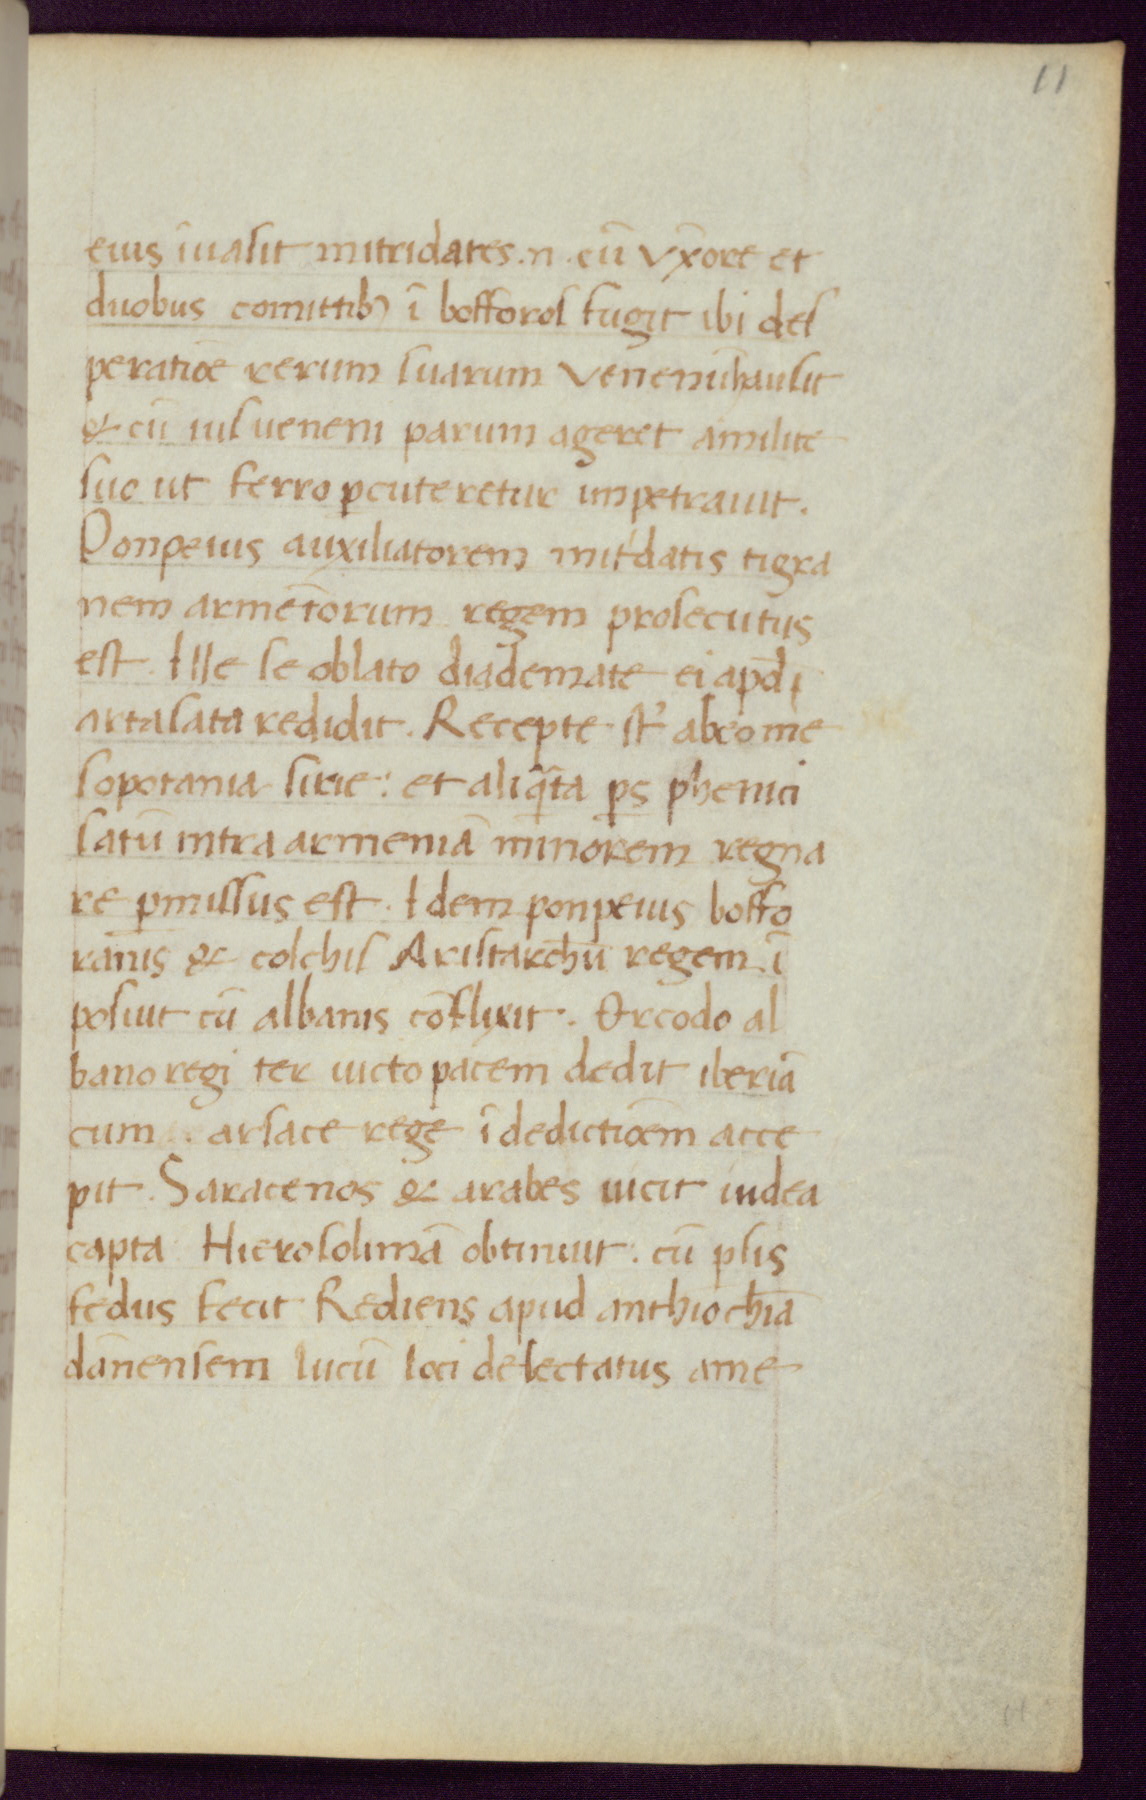 11
eius īuasit mitridates .n. cū vxore et
duobus comittibꝰ ī bosforos fugit ibi des
peratiōe rerum suarum venenū hausit
& cū uis ueneni parum ageret amilite
suo ut ferro ꝑcuteretur impetrauit.
Ponpeius auxiliatorem mit'datis tigra
nem armēiorum regem prosecutus
est. Ille se oblato diademate ei apd̄
artasata redidit. Recepte st' abeo me
sopotania sirie: et aliq̄ta ps phenici
satū intra armeniā minorem regna
re ꝑmissus est. Idem ponpeius bosfo
ranis & colchis Aristarchū regem ī
posiuit cū albanis cōflixit. Orcodo al
bano regi ter uicto pacem dedit iberiā
cum . arsace rege ī dedictiōem acce
pit. Saracenos & arabes uicit iudea
capta Hierosolimā obtinuit. cū ꝑsis
fedus fecit Rediens apud anthiochiā
dānensem lucū loci delectatus ame